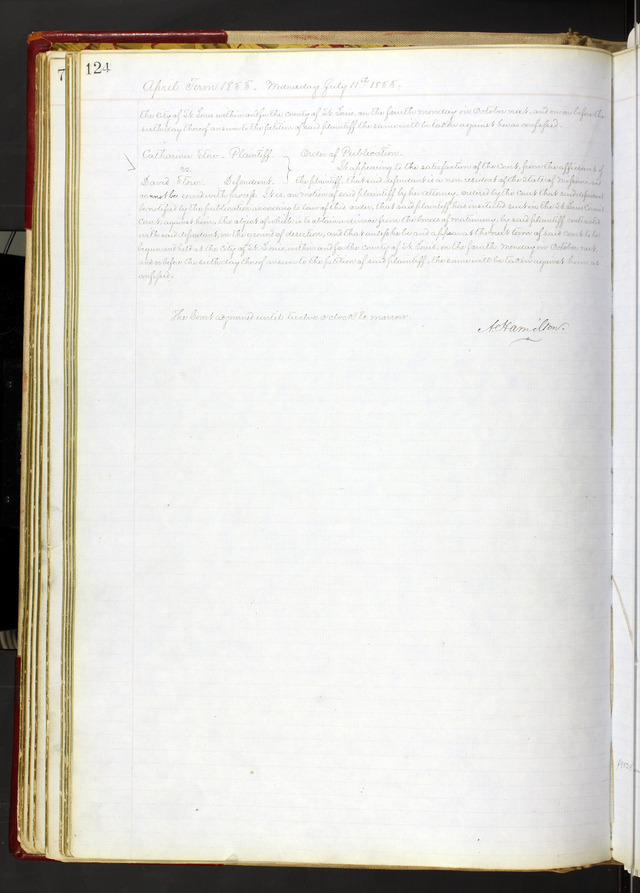 7
124
April Term 1855. Wednesday July 11th 1855.
the City of St Louis within and for the county of St Louis, on the fourth monday in October next, and on or before the
sixth day thereof answer to the petition of said plaintiff the same will be taken against him as confessed.
Catharine Stow. Plaintiff. } Order of Publication.
vs.
It appearing to the satisfaction of the Court, from the affidavit of
David Stow. Defendant. the plaintiff, that said defendant is a non resident of the state of Missouri and
cannot be served with process. It is, on motion of said plaintiff by her attorney ordered by the Court that said defendant
be notified by the publication according to law of this order, that said plaintiff has instituted suit in the St Louis Circuit
Court against him, the object of which is to obtain a divorce from the bonds of matrimony, by said plaintiff contracted
with said defendant, on the ground of desertion, and that unless he be and appear at the next term of said Court to be
begun and held at the City of St Louis, within and for the county of St Louis, on the fourth Monday in October next
and on or before the sixth day thereof answer to the petition of said plaintiff, the same will be taken against him as
confessed.
The Court adjourned until twelve o'clock to morrow.
A. Hamilton.